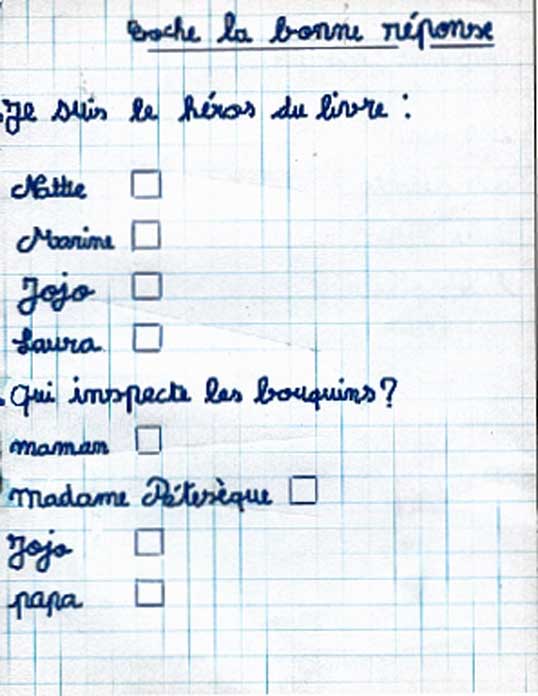 Coche la bonne réponse
Je suis le héros du livre :
Nattie
Marine
Jojo
Laura
Qui inspecte les bouquins?
maman
Madame Pétesèque
Jojo
papa